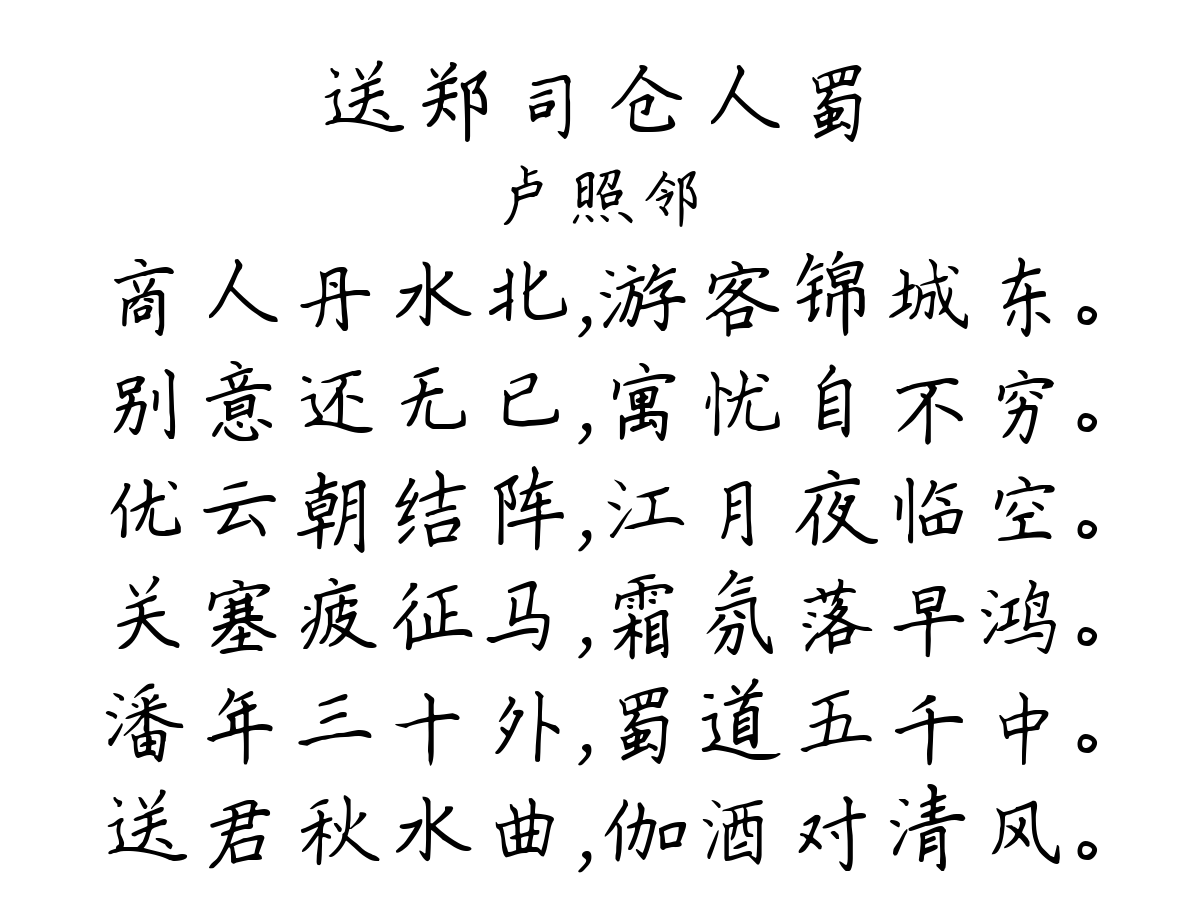 送郑司仓人蜀
卢照邻
商人丹水北,游客锦城东。
别意还无已,寓忧自不穷。
优云朝结阵,江月夜临空。
关塞疲征马,霜氛落早鸿。
潘年三十外,蜀道五千中。
送君秋水曲,伽酒对清风。